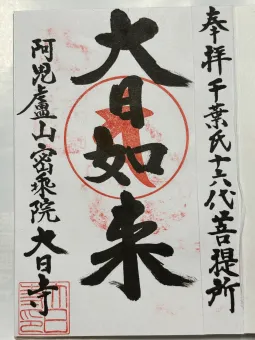 奉拝千葉氏十六代菩提所
大日如来
阿毘廬山密乘院大日寺